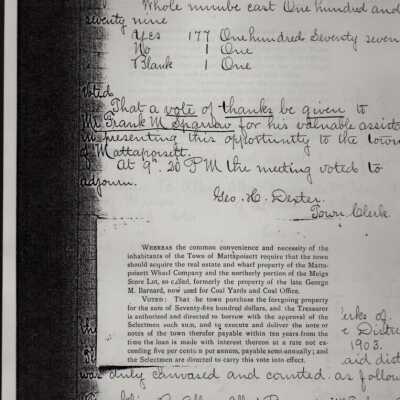 Whole numbe cast One hundred and
Seventy nine
Yes 177 One hundred Seventy seven
No 1 One
Blank 1 One
Voted
That a vote of thanks be given to
Mr Frank M. Sparrow for his valuable assist
in presenting this opportunity to the town
of Mattapoisett.
At 9.20 P M the meeting voted to
adjourn.
Geo. H. Dexter.
Town Clerk.
WHEREAS the common convenience and necessity of the
inhabitants of the Town of Mattapoisett require that the town
should acquire the real estate and wharf property of the Matta-
poisett Wharf Company and the northerly portion of the Meigs
Score Lot, so called, formerly the property of the late George
M. Barnard, now used for Coal Yards and Coal Office.
VOTED: That the town purchase the foregoing property
for the sum of Seventy-five hundred dollars, and the Treasurer
is authorized and directed to borrow with the approval of the
Selectmen such sum, and to execute and deliver the note or
notes of the town therefor payable within ten years from the
time the loan is made with interest thereon at a rate not ex-
ceeding five per cent per annum, payable semi-annually; and
the Selectmen are directed to carry this vote into effect.
erks of
e Distri
1903.
aid dist
was duly canvased and counted as follow